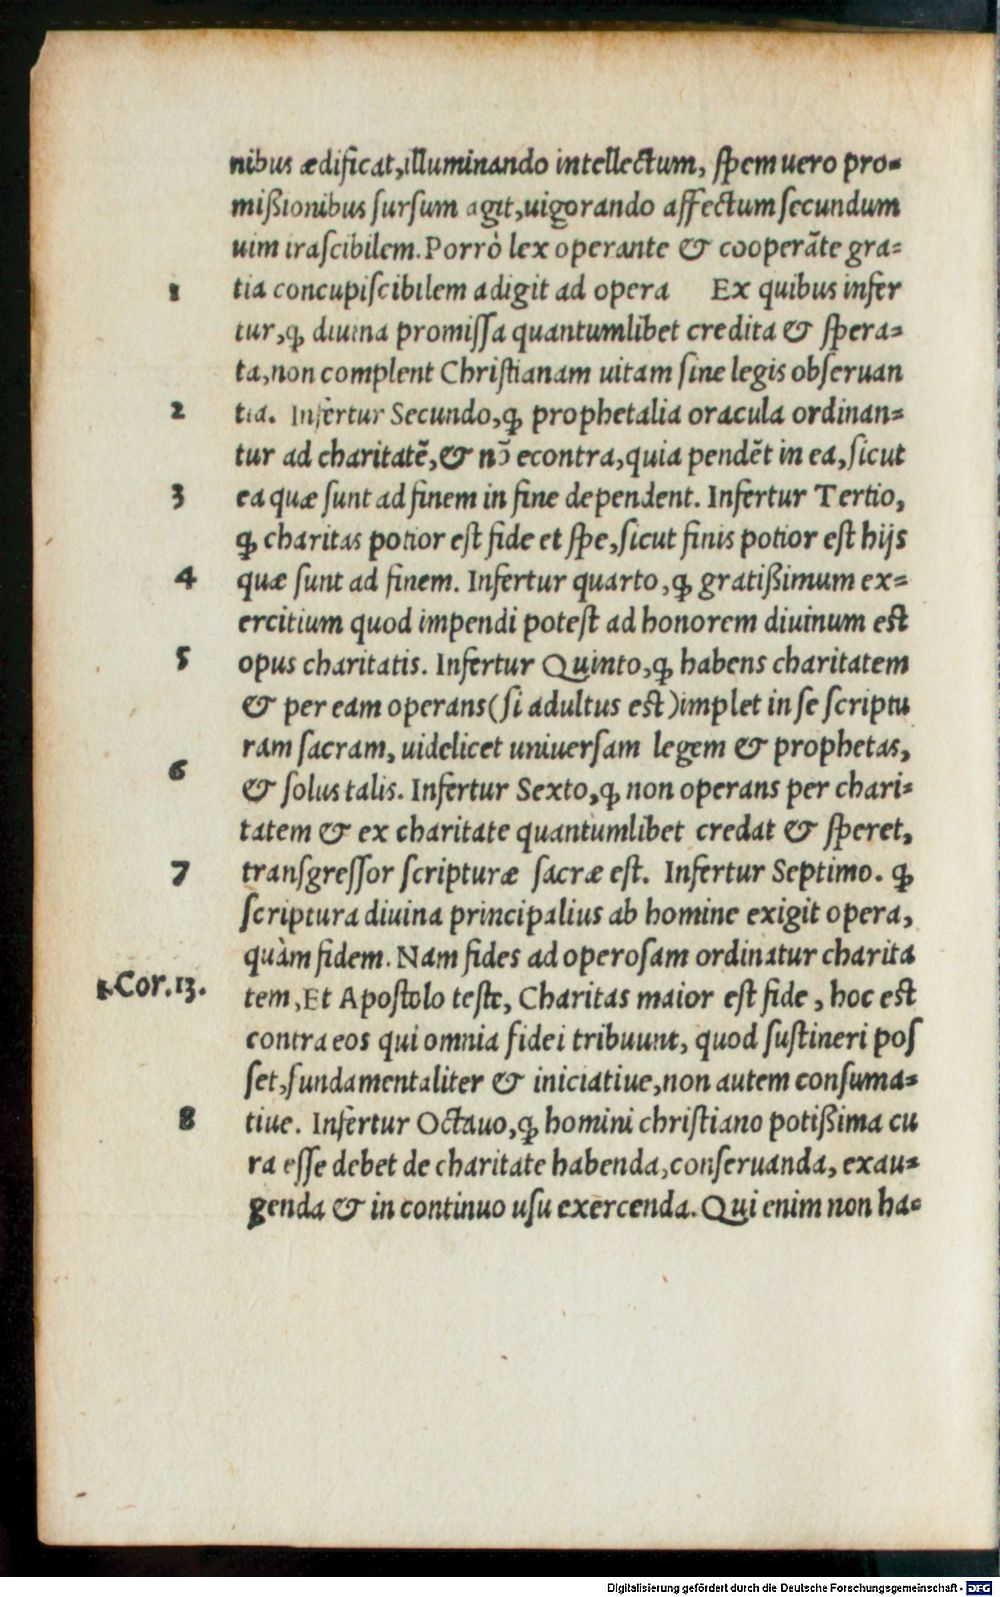 nibus ædificat, illuminando intellectum, spem uero pro-
mißionibus sursum agit, uigorando affectum secundum
uim irascibilem. Porrò lex operante & cooperāte gra-
1 tia concupiscibilem adigit ad opera Ex quibus infer
tur, ꝙ diuina promissa quantumlibet credita & spera-
ta, non complent Christianam uitam sine legis obseruan
2 tia. Infertur Secundo, ꝙ prophetalia oracula ordinan-
tur ad charitatē, & nō econtra, quia pendēt in ea, sicut
3 ea quæ sunt ad finem in fine dependent. Infertur Tertio,
ꝙ charitas potior est fide et spe, sicut finis potior est hijs
4 quæ sunt ad finem. Infertur quarto, ꝙ gratißimum ex-
ercitium quod impendi potest ad honorem diuinum est
5 opus charitatis. Infertur Quinto, ꝙ habens charitatem
& per eam operans (si adultus est) implet in se scriptu
ram sacram, uidelicet uniuersam legem & prophetas,
6 & solus talis. Infertur Sexto, ꝙ non operans per chari-
tatem & ex charitate quantumlibet credat & speret,
7 transgressor scripturæ sacræ est. Infertur Septimo. ꝙ
scriptura diuina principalius ab homine exigit opera,
quàm fidem. Nam fides ad operosam ordinatur charita
1.Cor.13. tem, Et Apostolo teste, Charitas maior est fide, hoc est
contra eos qui omnia fidei tribuunt, quod sustineri pos
set, fundamentaliter & iniciatiue, non autem consuma-
8 tiue. Infertur Octauo, ꝙ homini christiano potißima cu
ra esse debet de charitate habenda, conseruanda, exau-
genda & in continuo usu exercenda. Qui enim non ha-
Digitalisierung gefördert durch die Deutsche Forschungsgemeinschaft - DFG